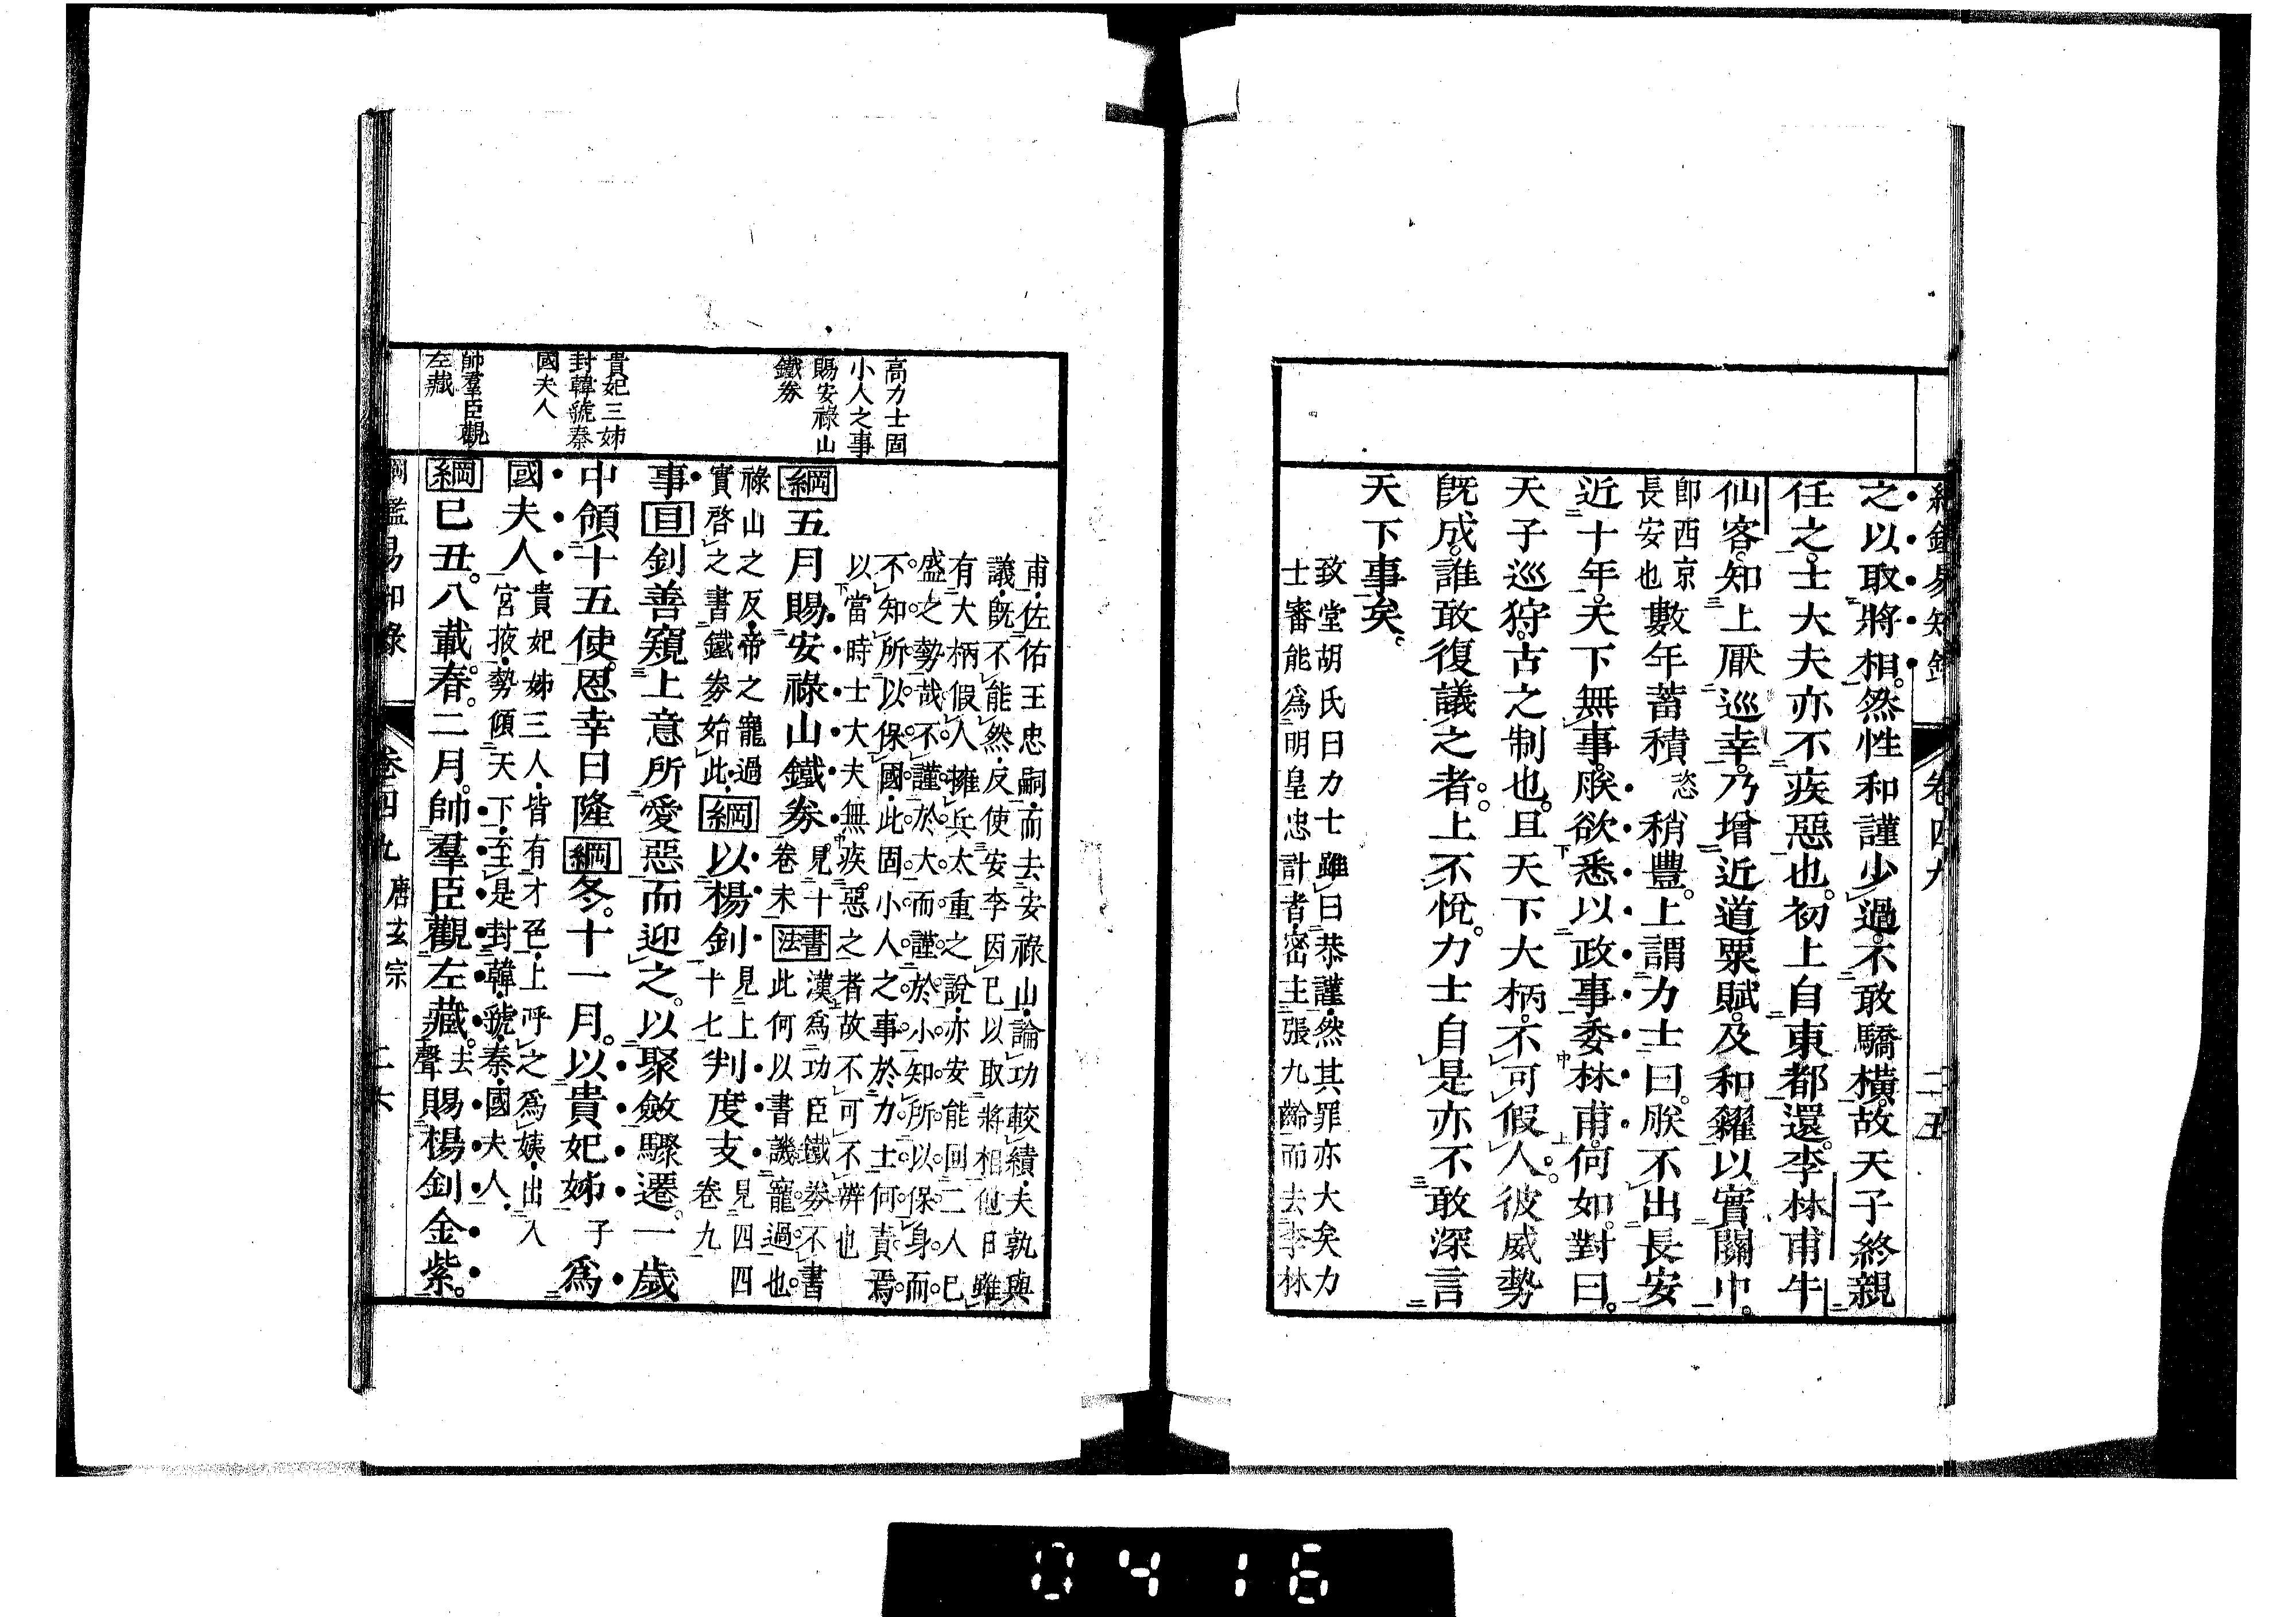 綱鑑易知錄 卷四九 二五
之以取將相。然性和謹少過。不敢驕橫。故天子終親
任之。士大夫亦不疾惡也。初上自東都還。李林甫牛
仙客。知上厭巡幸。乃增近道粟賦。及和糴以實關中。
數年蓄積稍豐。上謂力士曰。朕不出長安
即西京
長安也
恣
近十年。天下無事。朕欲悉以政事委林甫。何如。對曰。
天子巡狩。古之制也。且天下大柄。不可假人。彼威勢
旣成。誰敢復議之者。上不悅。力士自是亦不敢深言
天下事矣。
致堂胡氏曰力士雖曰恭謹然其罪亦大矣力
士審能爲明皇忠計者密主張九齡而去李林
甫佐佑王忠嗣而去安祿山論功較績夫孰與
議旣不能然反使安李因已以取將相他日雖
有大柄假人擁兵太重之說亦安能回二人已
盛之勢哉不謹於大而謹於小知所以保身而
不知所以保國此固小人之事於力士何責焉
以當時士大夫無疾惡之者故不可不辨也
高力士固
小人之事
賜安祿山
鐵券
綱五月賜安祿山鐵券。
見十
卷末
書法
漢爲功臣鐵券不書
此何以書譏寵過也
祿山之反帝之寵過
實啓之書鐵券始此
綱以楊釗
見上
十七
判度支
見四四
卷九
事目釗善窺上意所愛惡而迎之。以聚斂驟遷。一歲
中領十五使。恩幸日隆綱冬。十一月。以貴妃姊
子
爲
國夫人
貴妃姊三人皆有才色上呼之爲姨出入
宮掖勢傾天下至是封韓虢秦國夫人
貴妃三姊
封韓虢秦
國夫人
綱已丑。八載春。二月。帥羣臣觀左藏。
去
聲
賜楊釗金紫。
帥羣臣觀
左藏
綱鑑易知錄 卷四九 唐玄宗 二六
0416